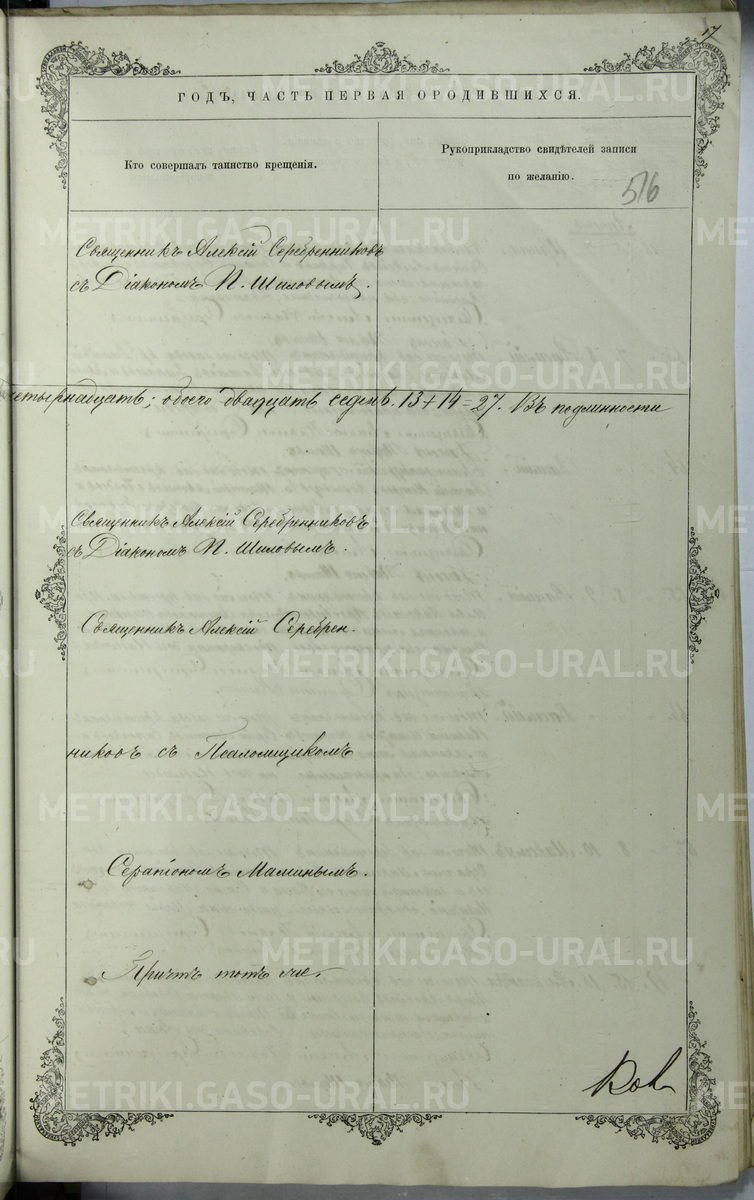 17
ГОДЪ, ЧАСТЬ ПЕРВАЯ ОРОДИВШИХСЯ.
Кто совершалъ таинство крещенія.
Рукоприкладство свидѣтелей записи
по желанію.
516
Священникъ Алексій Серебренниковъ
съ Діакономъ П. Шиловымъ.
четырнадцать; обоего двадцать седмь. 13 + 14 = 27. Въ подлинности
Священникъ Алексій Серебренниковъ
съ Діакономъ П. Шиловымъ.
Священникъ Алексій Серебрен-
никовъ съ Псаломщикомъ
Серапіономъ Маминымъ.
Причтъ тотъ же.
METRIKI.GASO-URAL.RU